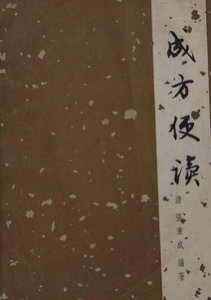 成方便读
清 張秉成 编著